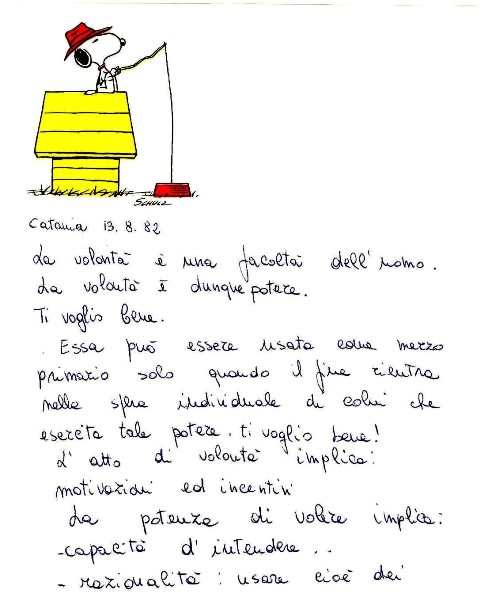 SCHULZ
Catania 13.8.82
La volontà è una facoltà dell'uomo.
La volontà è dunque potere.
Ti voglio bene.
. Essa può essere usata come mezzo
primario solo quando il fine rientra
nella sfera individuale di colui che
esercita tale potere. ti voglio bene!
L'atto di volontà implica:
motivazioni ed incentivi
La potenza di volere implica:
-capacità d'intendere..
- razionalità: usare cioè dei